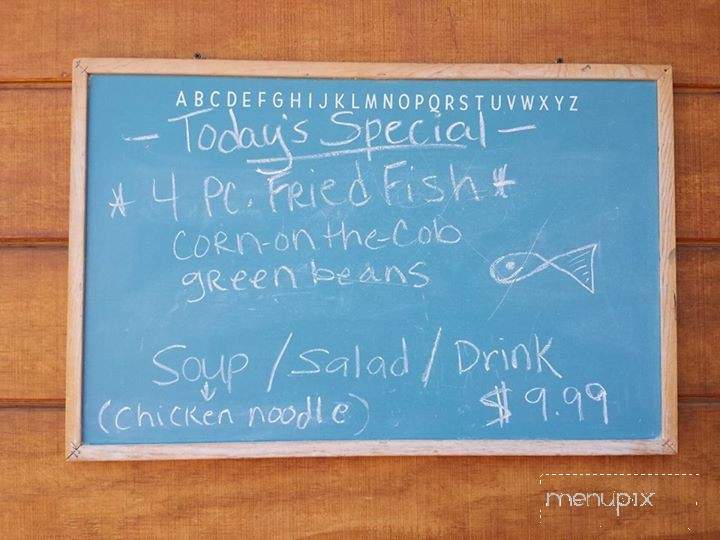 ABCDEFGHIJKLMNOPQRSTUVWXYZ
- Today's Special -
* 4 PC. Fried Fish *
corn-on the-cob
green beans
Soup / Salad / Drink
(chicken noodle) $9.99
menupix